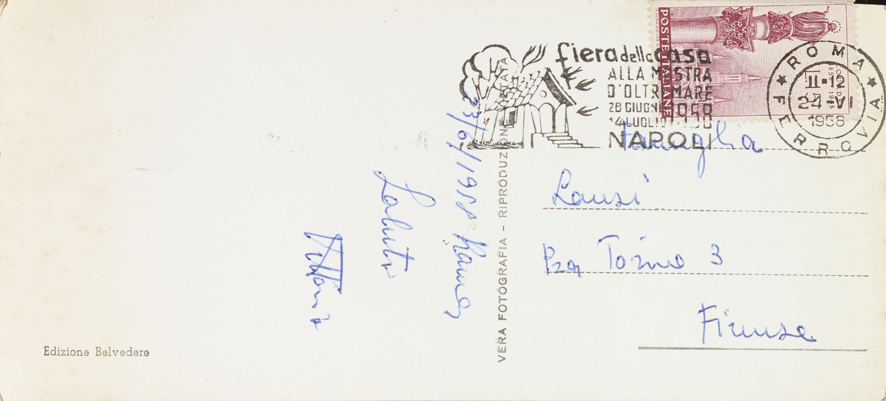 POSTE ITALIANE
fiera della casa
ALLA MOSTRA
D'OLTREMARE
28 GIUGNO 1958
14 LUGLIO
NAPOLI
ROMA
II-12
24-VI
1958
FERROVIA
23/6/1958 Roma
Saluti
Vittorio
VERA FOTOGRAFIA – RIPRODUZIONE VIETATA
Famiglia
Lansi
Pza Torino 3
Firenze
Edizione Belvedere